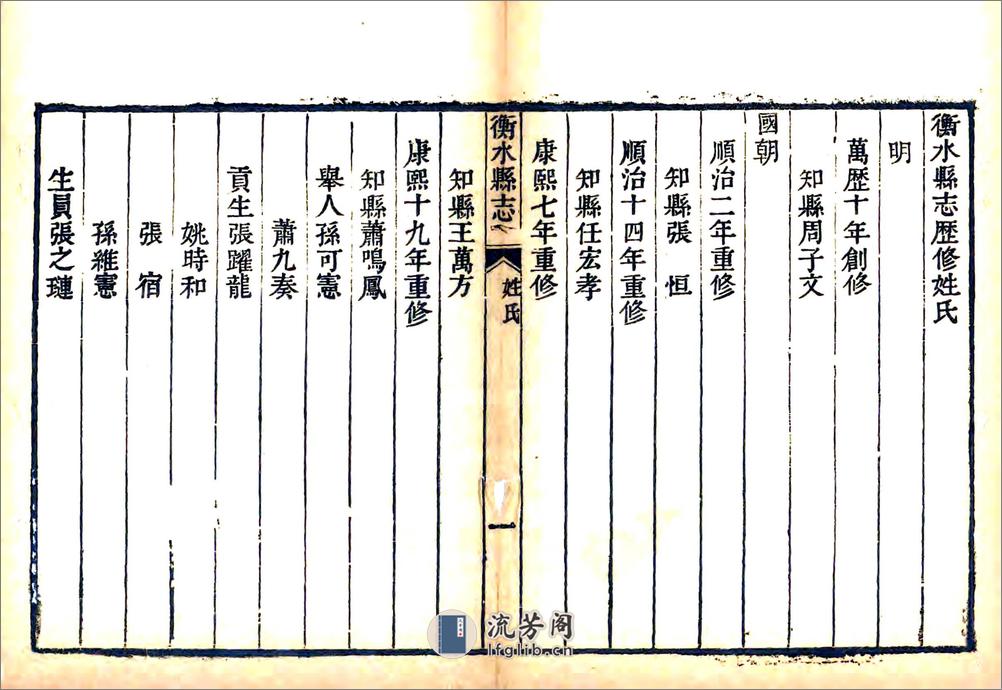 衡水縣志歷修姓氏
明
萬歷十年創修
知縣周子文
國朝
順治二年重修
知縣張恒
順治十四年重修
知縣任宏孝
康熙七年重修
衡水縣志
姓氏
一
知縣王萬方
康熙十九年重修
知縣蕭鳴鳳
舉人孫可憲
蕭九奏
貢生張躍龍
姚時和
張宿
孫維憲
生員張之璉
流芳阁
lfglib.cn